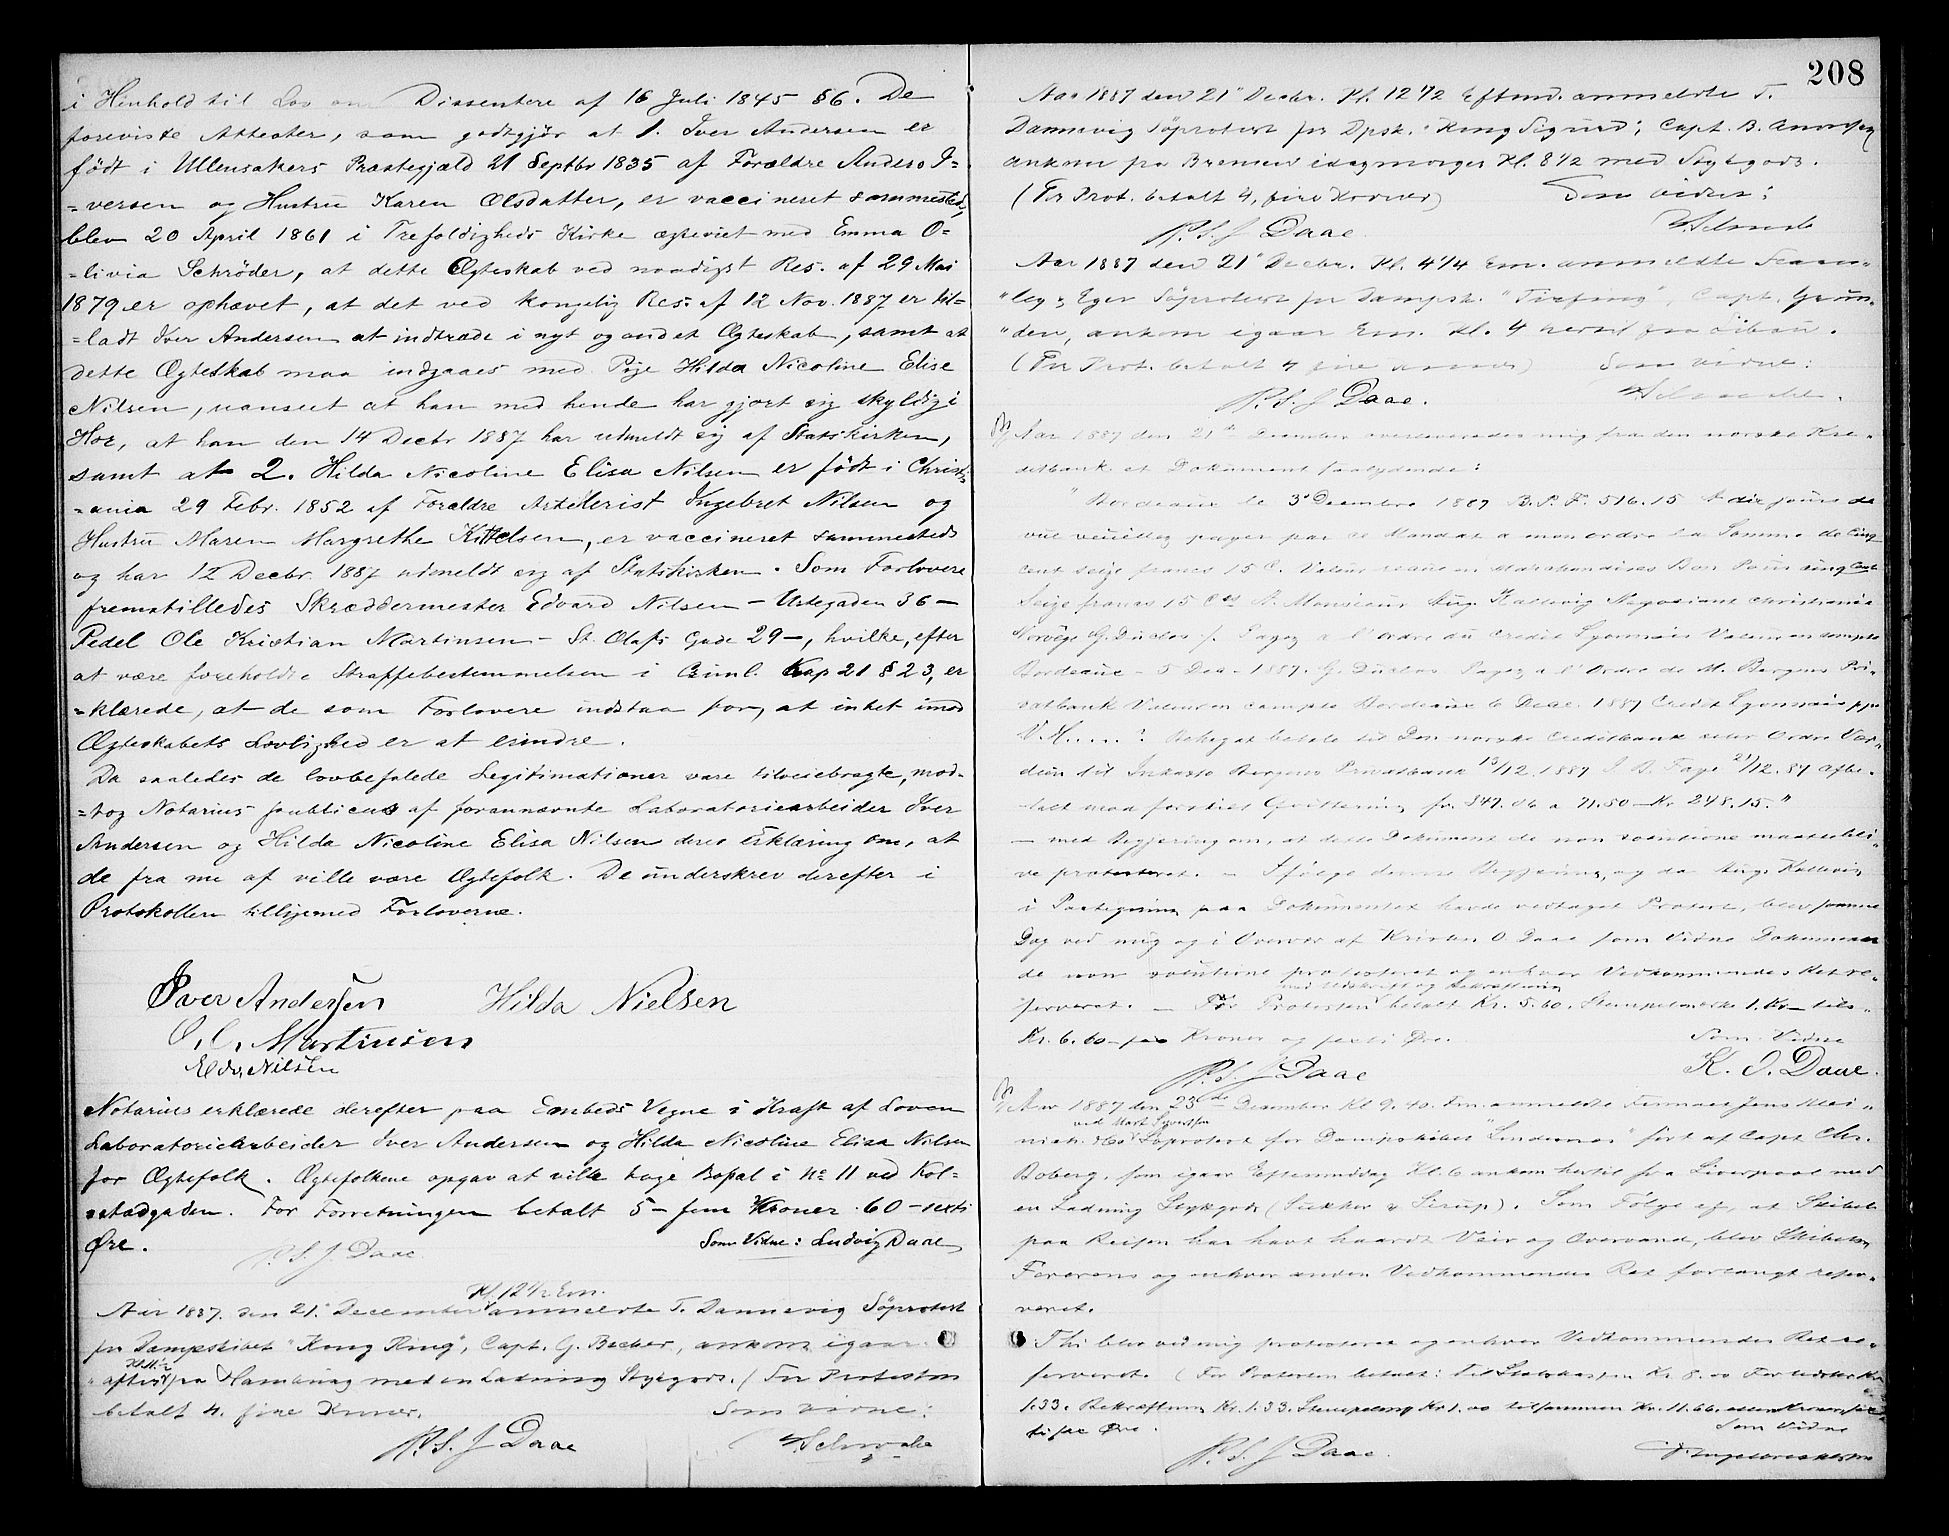 i Henhold til Lov om Dissentere af 16 Juli 1845 §6. De
foreviste Attester, som godtgjør at 1. Iver Andersen er
født i Ullensakers Præstegjæld 21 Septbr 1835 af Forældre Anders I=
=versen og Hustru Karen Olsdatter, er vaccineret sammesteds,
blev 20 April 1861 i Trefoldigheds Kirke ægteviet med Emma O=
=livia Schrøder, at dette Ægteskab ved naadigst Res. af 29 Mai
1879 er ophævet, at det ved kongelig Res. af 12 Nov. 1887 er til=
=ladt Iver Andersen at indtræde i nyt og andet Ægteskab, samt at
dette Ægteskab maa indgaaes med Pige Hilda Nicoline Elise
Nilsen, uanseet at han med hende har gjort sig skyldig i
Hor, at han den 14 Decbr 1887 har udmeldt sig af Statskirken,
samt at 2. Hilda Nicoline Elisa Nilsen er født i Christi=
=ania 29 Febr. 1852 af Forældre Artillerist Ingebret Nilsen og
Hustru Maren Margrethe Kittelsen, er vaccineret sammesteds
og har 12 Decbr. 1887 udmeldt sig af Statskirken. Som Forlovere
fremstilledes Skræddermester Edvard Nilsen – Urtegaden 36 –
Pedel Ole Kristian Martinsen – St. Olafs Gade 29 –, hvilke, efter
at være foreholdte Straffebestemmelsen i Criml. Kap 21 § 23, er
=klærede, at de som Forlovere indstaa for, at intet imod
Ægteskabets Lovlighed er at erindre.
Da saaledes de lovbefalede Legitimationer vare tilveiebragte, mod=
=tog Notarius publicus af forannævnte Laboratoriearbeider Iver
Andersen og Hilda Nicoline Elisa Nilsen deres Erklæring om, at
de fra nu af ville være Ægtefolk. De underskrev derefter i
Protokollen tilligemed Forloverne.
Iver Andersen Hilda Nielsen
O. C. Martinsen
Edv. Nilsen
Notarius erklærede derefter paa Embeds Vegne i Kraft af Loven
Laboratoriearbeider Iver Andersen og Hilda Nicoline Elisa Nilsen
for Ægtefolk. Ægtefolkene opgav at ville tage Bopæl i No 11 ved Kol=
=stadgaden. For Forretningen betalt 5 – fem Kroner 60 – sexti
Øre. Som Vidne: Ludvig Daae
P. S. J Daae
Kl. 12 1/2 Em.
Aar 1887. den 21. December anmeldte T. Dannevig Søprotest
for Dampskibet "Kong Ring", Capt. G. Becker, ankom igaar
Kl 11 1/2
aftes fra Hamburg med en Ladning Stykgods. (For Protesten
betalt 4. fire Kroner. Som vidne:
P. S. J Daae
208
Aar 1887 den 21 Decbr. Kl. 12 1/2 Eftmd. anmeldte T.
Dannevig Søprotest for Dpsk. "Kong Sigurd", Capt. B.
ankom fra Bremen idagmorges Kl. 8 1/2 med Stykgods.
(For Prot. betalt 4, fire Kroner) Som vidne:
P. S. J Daae
Aar 1887 den 21 Decbr. Kl. 4 1/4 Em. anmeldte Fearn=
"ley & Eger Søprotest for Dampsk. "Tirfing", Capt. Grun=
"den, ankom igaar Em. Kl. 4 hertil fra Libau.
(For Prot. betalt 4 fire Kroner) Som vidne:
P. S. J Daae.
Aar 1887 den 21de December overleveredes mig fra den norske Kre=
ditbank et Dokument saalydende:
"Bordeaux le 3 Decembre 1887 B. P. F. 516.15 A dix jours de
vue veuillez payer par ce Mandat a mon ordre la Somme de Cinq
cent seize francs 15 C. Valeur recue en Marchandises Bon Pour cinq Cent
Seize francs 15 Cts A. Monsieur Aug. Kallevig Negociant Christiania
Norvège G. Duclos /. Payez a l'ordre du Credit Lyonnais Valeur en compte
Bordeaux – 5 Dec. 1887. G. Duclos Payez a l'Ordre de M. Bergens Pri=
vatbank Valeur en compte Bordeaux 6 Dec. 1887 Credit Lyonnais
Behagat betale til Den norske Creditbank eller Ordre Vær=
dien til Inkasso Bergens Privatbank 13/12. 1887 21/12. 87 afbe=
talt mod forstiet Qvittering fr. 347.06 a 71.50 – Kr. 248.15."
– med Begjæring om, at dette Dokument de non solutione maatte bli=
ve protesteret. – Ifølge denne Begjæring, og da Aug. Kallevig
i Paategning paa Dokumentet havde vedtaget Protest, blev samme
Dag ved mig og i Overvær af Kristen O. Daae som Vidne Dokumentet
de non solutione protesteret og enhver Vedkommendes Ret re=
med Udskrift og Bekræftning
serveret. – For Protesten betalt Kr. 5.60. Stempelmærke 1. Kr – tils.
Kr. 6.60 – sex Kroner og sexti Øre. Som Vidne
P. S. J Daae K. O. Daae.
Aar 1887 den 23de December Kl 9.40. Fm. anmeldte Firmaet Jens Mei=
nich & Co Søprotest for Dampskibet "Lindernes" ført af Capt. Chr.
Boberg, som igaar Eftermiddag Kl. 6 ankom hertil fra Liverpool med
en Ladning Stykgods (Sukker & Sirup). Som Følge af, at Skibet
paa Reisen har havt haardt Veir og Overvand, blev Skibets,
Føreren og enhver anden Vedkommendes Ret forlangt reser=
veret.
Thi blev ved mig protesteret og enhver Vedkommendes Ret re=
serveret. (For Protesten betalt: Til Statskassen Kr. 8.00 For Udskr. Kr
1.33. Bekræftning Kr. 1.33. Stempelmrk Kr 1.00 tilsammen Kr. 11.66. elleve Kroner sex
ti sex Øre. Som Vidne
P. S. J Daae.